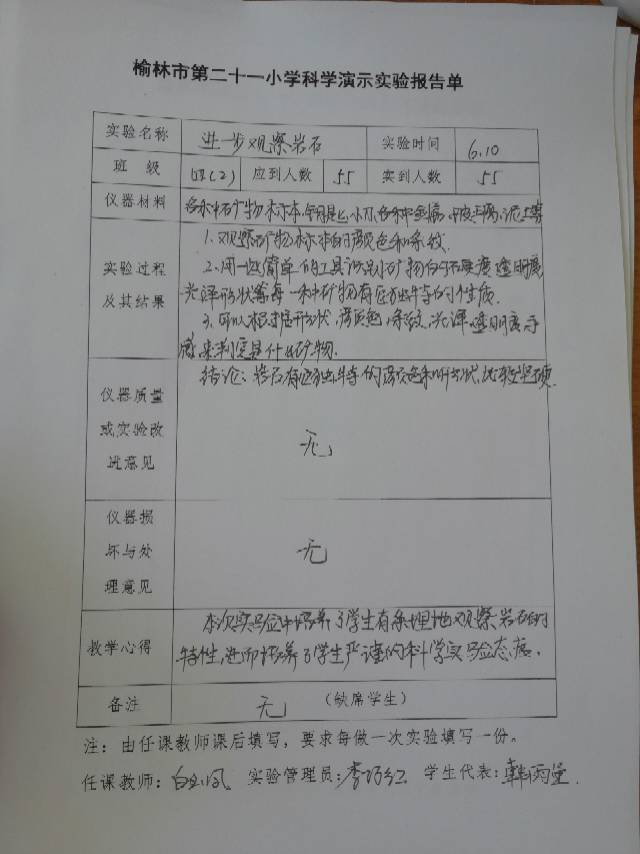 榆林市第二十一小学科学演示实验报告单
实验名称 进一步观察岩石 实验时间 6.10
班 级 四(2) 应到人数 55 实到人数 55
仪器材料 各种矿物标本、小刀、各种金属
1、观察矿物标本的颜色和条纹.
实验过程 2、用一些简单的工具识别矿物的硬度透明度
及其结果 光泽形状等每一种矿物有它独特的性质.
3、可以根据形状,颜色,条纹,光泽透明度
来判定是什么矿物.
结论:岩石有它独特的颜色和形状,比较坚硬.
仪器质量
或实验改 无
进意见
仪器损
坏与处 无
理意见
本次实验中培养了学生有条理地观察岩石的
教学心得 特性,进而培养了学生严谨的科学实验态度.
备注 无 (缺席学生)
注:由任课教师课后填写,要求每做一次实验填写一份。
任课教师: 实验管理员:李巧红 学生代表:韩雨